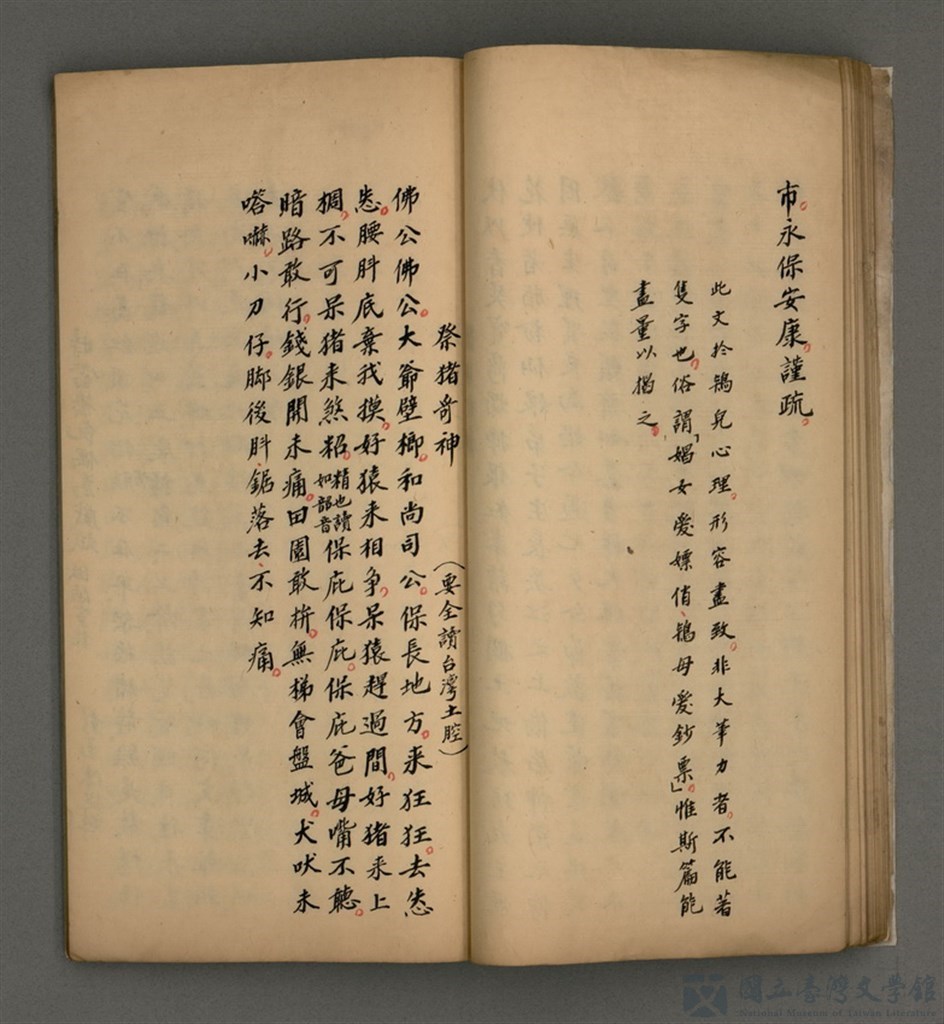 市。永保安康。謹疏。
此文於鴇兒心理。形容盡致。非大筆力者。不能著
隻字也。俗謂「娼女愛嫖俏、鴇母愛鈔票」。惟斯篇能
盡量以描之。
祭猪哥神
(要全讀台灣土腔)
佛公佛公。大爺壁椰。和尚司公。保長地方。来狂狂。去怣
怣。腰肚底棄我摸。好猿来相争。呆猿趕過間。好猪来上
椆。不可呆猪来煞粩。精也讀如部音保庇保庇。保庇爸母嘴不聽。
暗路敢行。錢銀開未痛。田園敢拚。無梯會盤城。犬吠未
嗒嚇。小刀仔。脚後肚、鋸落去、不知痛。
國立臺灣文學館
National Museum of Taiwan Literature